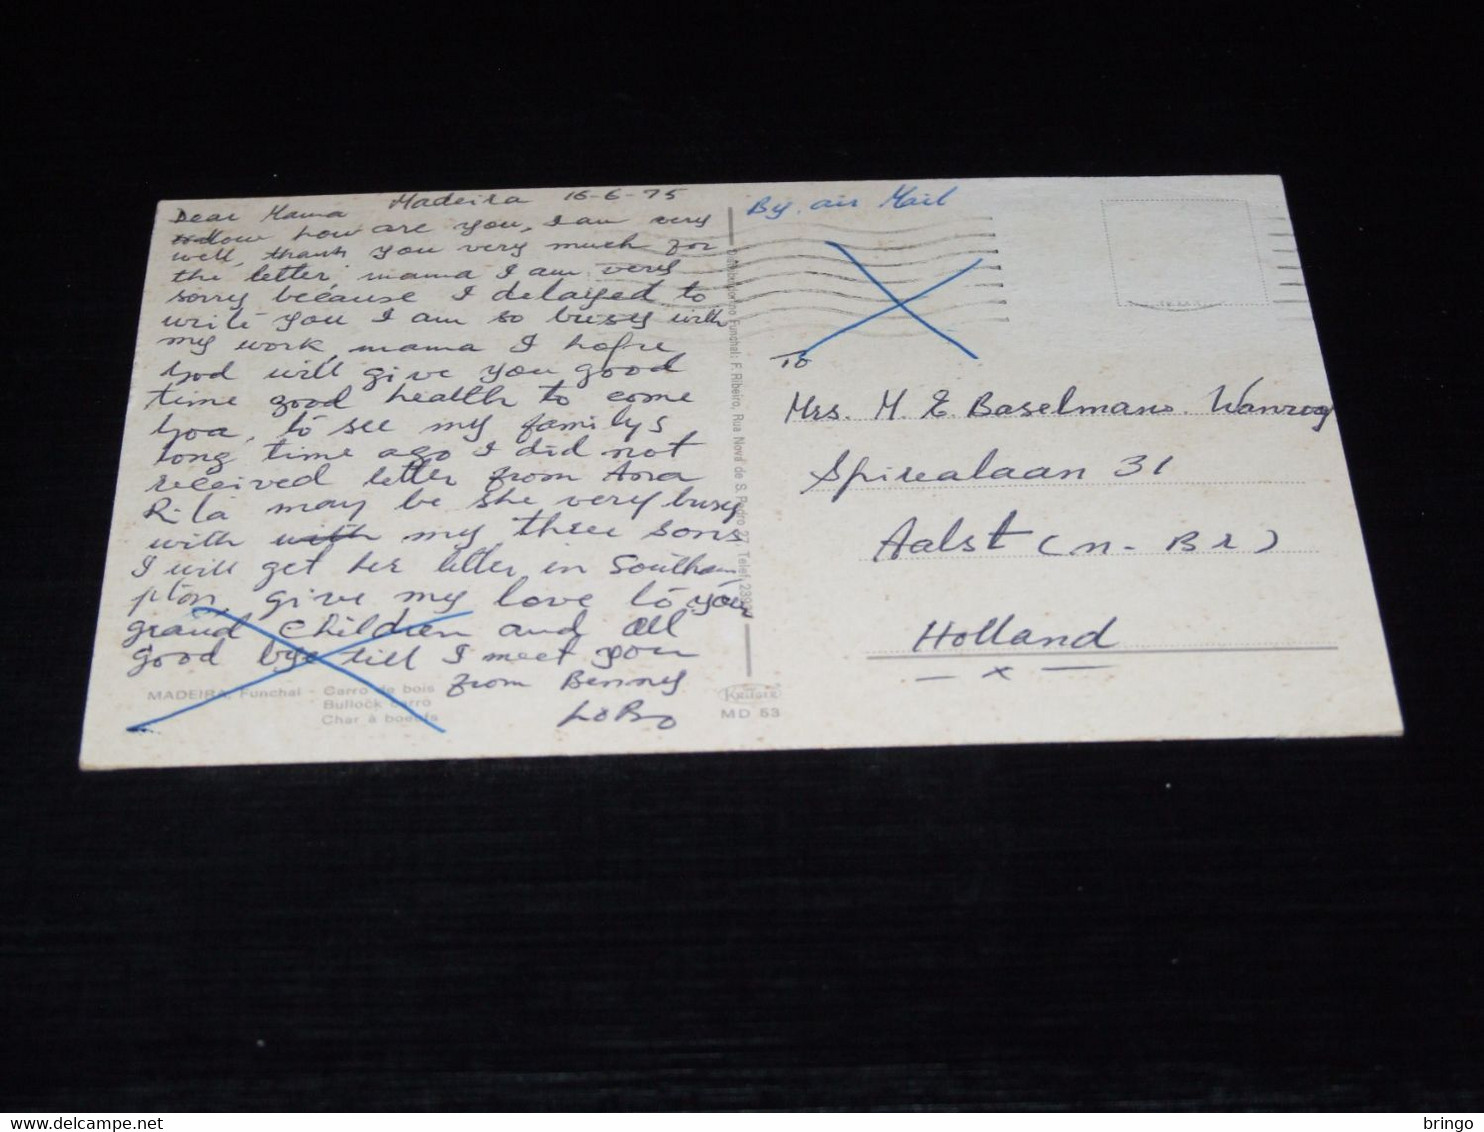 Dear Mama Madeira 16-6-75
how are you, I am very
well, thank you very much for
the letter mama I am very
sorry because I delayed to
write you I am so busy with
my work, mama I hope
God will give you good
time good health to come
Goa, to see my familys
long time ago I did not
received letter from Ana
Rita may be she very busy
with with my three sons
I will get her letter in Southam
pton, give my love to your
grand children and all
good bye till I meet you
from Benny
LoBo
MADEIRA, Funchal - Carro de bois
Bullock carro
Char à boeufs
Distribuidor no Funchal: F. Ribeiro, Rua Nova de S. Pedro 27, Telef.
KRÜGER
MD 53
By air Mail
To
Mrs. M. E. Baselmans. Wanrooy
Spirealaan 31
Aalst (N-Br)
Holland
- x -
delcampe.net
bringo